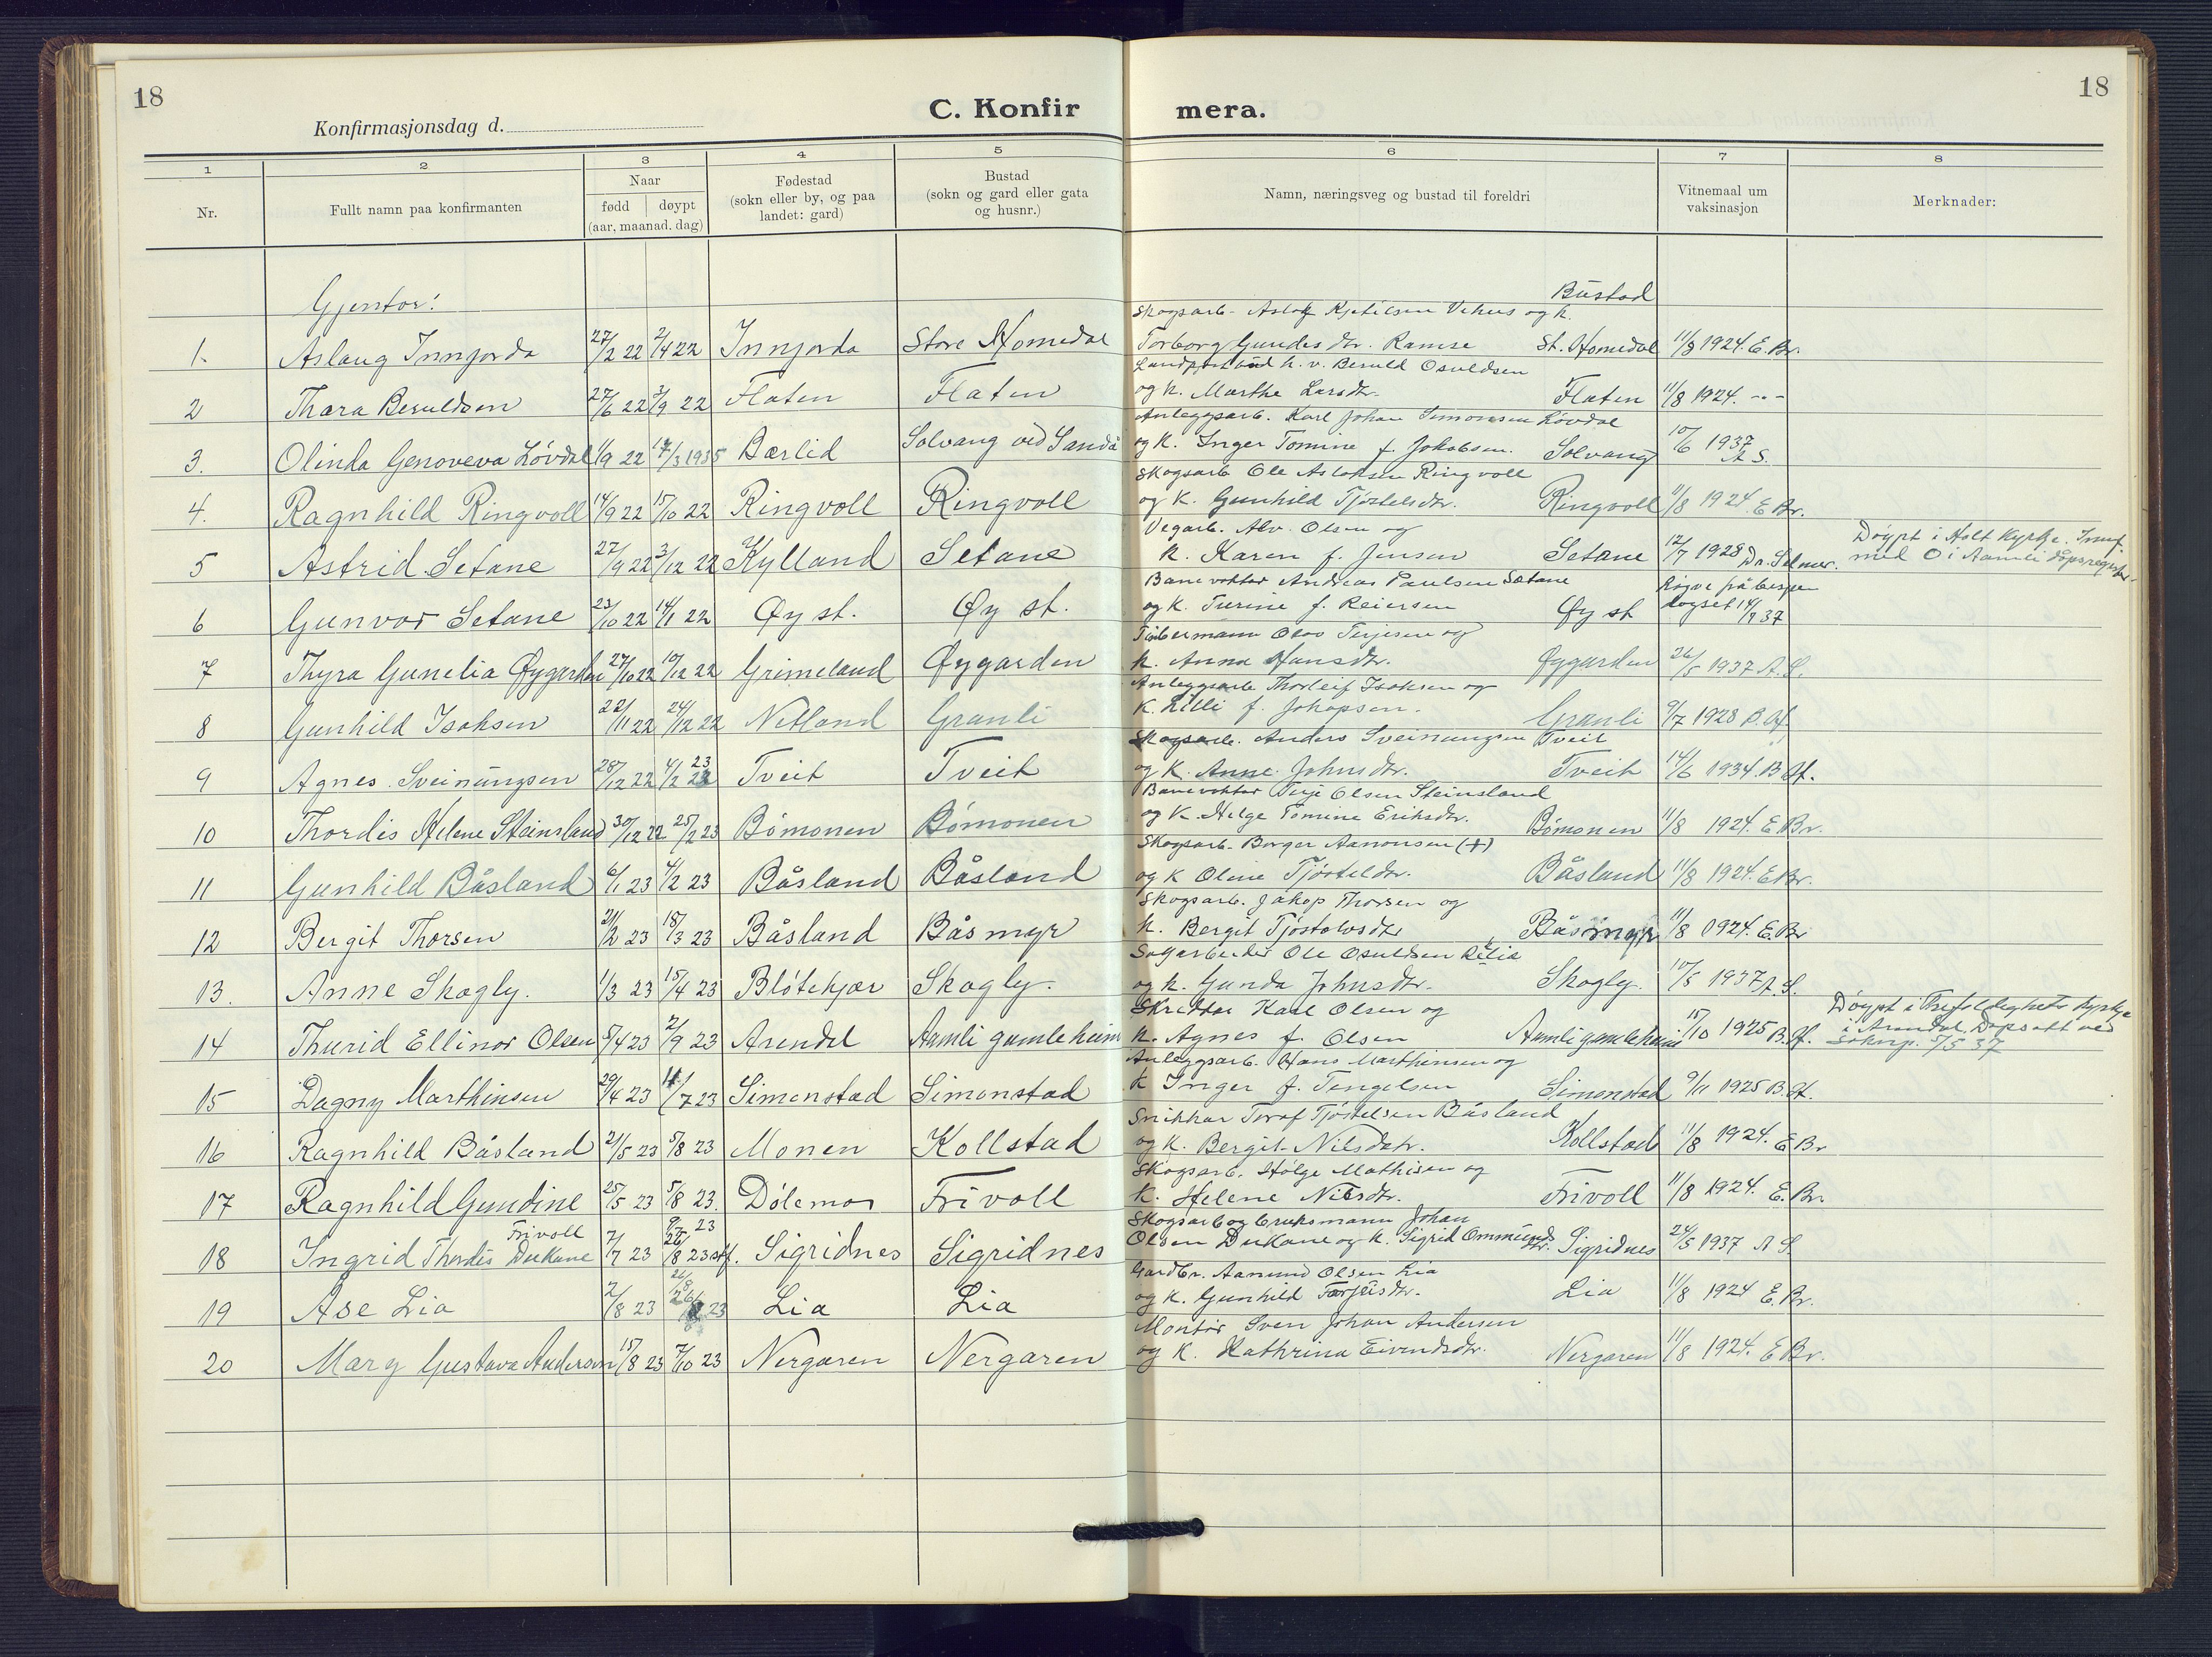 18
C. Konfirmera.
18
Konfirmasjonsdag d.
1 2 3 4 5 6 7 8
Nr.
Fullt namn paa konfirmanten
Naar
fødd døypt
(aar, maanad. dag)
Fødestad
(sokn eller by, og paa
landet: gard)
Bustad
(sokn og gard eller gata
og husnr.)
Namn, næringsveg og bustad til foreldri
Vitnemaal um
vaksinasjon
Merknader:
Gjentor:
Bustad
Skogsarb. Aslak Kjetilsen Vehus og k.
1. Aslaug Innjorda 27/2 22 2/4 22 Innjorda Store Homedal Torborg Gundesdtr. Ramse St. Homedal 11/8 1924. E. Br.
Landpostbud h. v. Beruld Osuldsen
2 Thora Beruldsen 27/6 22 3/9 22 Flaten Flaten og k. Marthe Larsdtr. Flaten 11/8 1924. - - -
Anleggsarb. Karl Johan Simonsen Løvdal
3. Olinda Genoveva Løvdal 1/9 22 17/3 1935 Bærlid Solvang ved Sandå og k. Inger Tomine f. Jakobsen. Solvang 10/6 1937 A S.
Skogsarb Ole Aslaksen Ringvoll
4. Ragnhild Ringvoll 14/9 22 15/10 22 Ringvoll Ringvoll og k. Gunhild Tjøstelsdtr. Ringvoll 11/8 1924 E Br.
Vegarb. Alv. Olsen og
5 Astrid Setane 27/9 22 3/12 22 Kylland Setane k. Karen f. Jensen Setane 12/7 1928 Dr. Selmer. Døypt i Holt kyrkje. Innf.
med O i Aamli dåpsregister.
Banevoktar Andreas Paulsen Setane
6 Gunvor Setane 23/10 22 14/1 22 Øy st. Øy st. og k. Turine f. Reiersen Øy st 14/9 37
Timbermann Olav Terjesen og
7 Thyra Gunelia Øygarden 27/10 22 10/12 22 Grimeland Øygarden k. Anna Hansdtr. Øygarden 26/5 1937 A. S.
Anleggsarb Thorleif Isaksen og
8 Gunhild Isaksen 22/11 22 24/12 22 Netland Granli k. Lilli f. Johansen. Granli 9/7 1928 B. Af.
Skogsarb. Anders Sveinungsen Tveit
9 Agnes. Sveinungsen 28/12 22 4/2 23 Tveit Tveit og k. Anne Johnsdtr. Tveit 14/6 1934. B Af.
Banevoktar Terje Olsen Steinsland
10 Thordis Helene Steinsland 30/12 22 25/2 23 Bømonen Bømonen og k Helge Tomine Eriksdtr. Bømonen 11/8 1924. E. Br.
Skogsarb. Borger Aanonsen (+)
11 Gunhild Båsland 6/1 23 4/2 23 Båsland Båsland og k Oline Tjøsteldtr. Båsland 11/8 1924. E Br.
Skogsarb. Jakop Thorsen og
12 Bergit Thorsen 21/2 23 18/3 23 Båsland Båsmyr k. Bergit Tjøstolvsdtr Båsmyr 11/8 1924. E. Br
Sagarbeider Ole Osuldsen
13. Anne Skogly. 1/3 23 15/4 23 Bløtekjær Skogly. og k. Gunda Johnsdtr. Skogly. 10/5 1937 A. S.
Skreddar Karl Olsen og
14 Thurid Ellinor Olsen 5/4 23 2/9 23 Arendal Aamli gamleheim k. Agnes f. Olsen Aamli gamleheim 15/10 1925 B. Af. Døypt i Trefoldighets kyrkje
i Arendal. Dåpsatt ved
soknp. 5/5 37
Anleggsarb. Hans Marthinsen og
15 Dagny Marthinsen 29/4 23 11/7 23 Simonstad Simonstad k Inger f. Tengelsen Simonstad 9/11 1925 B. Af.
Snikkar Torof Tjøstelsen Båsland
16 Ragnhild Båsland 21/5 23 5/8 23 Monen Kollstad og k. Bergit Nilsdotr. Kollstad 11/8 1924. E Br
Skogsarb. Helge Mathisen og
17 Ragnhild Gundine Frivoll 25/5 23 5/8 23. Dølemo Frivoll k. Helene Nilsdtr. Frivoll 11/8 1924. E. Br.
Skogsarb og bruksmann Johan
18 Ingrid Thordis Dukane 7/7 23 26/8 23 stf. Sigridnes Sigridnes Olsen Dukane og k. Sigrid Ommundsdtr. Sigridnes 24/5 1937 A S.
Gardbr. Aanund Olsen Lia
19 Ase Lia 2/8 23 26/8 23 Lia Lia og k. Gunhild Tarjeisdtr. Lia 11/8 1924 E. Br.
Montør Sven Johan Andersen
20 Mary Gustava Andersen 15/8 23 7/10 23 Nergaren Nergaren og k. Kathrina Eivendsdtr. Nergaren 11/8 1924. E Br.